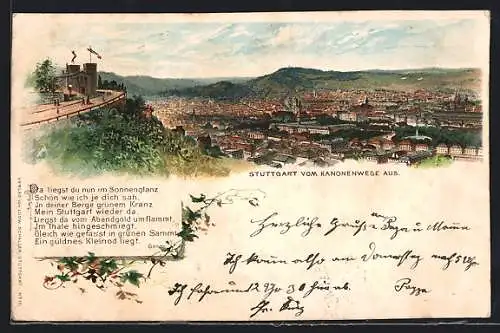 STUTTGART VOM KANONENWEGE AUS.
Da liegst du nun im Sonnenglanz
Schön wie ich je dich sah,
In deiner Berge grünem Kranz
Mein Stuttgart wieder da.
Liegst da vom Abendgold umflammt,
Im Thale hingeschmiegt,
Gleich wie gefasst in grünen Sammt
Ein güldnes Kleinod liegt.
Herzliche Grüsse Papa u Mama
Ich komme also am Donnerstag nach 5 Uhr
Ich fahre um 12 Uhr 30 hier ab.